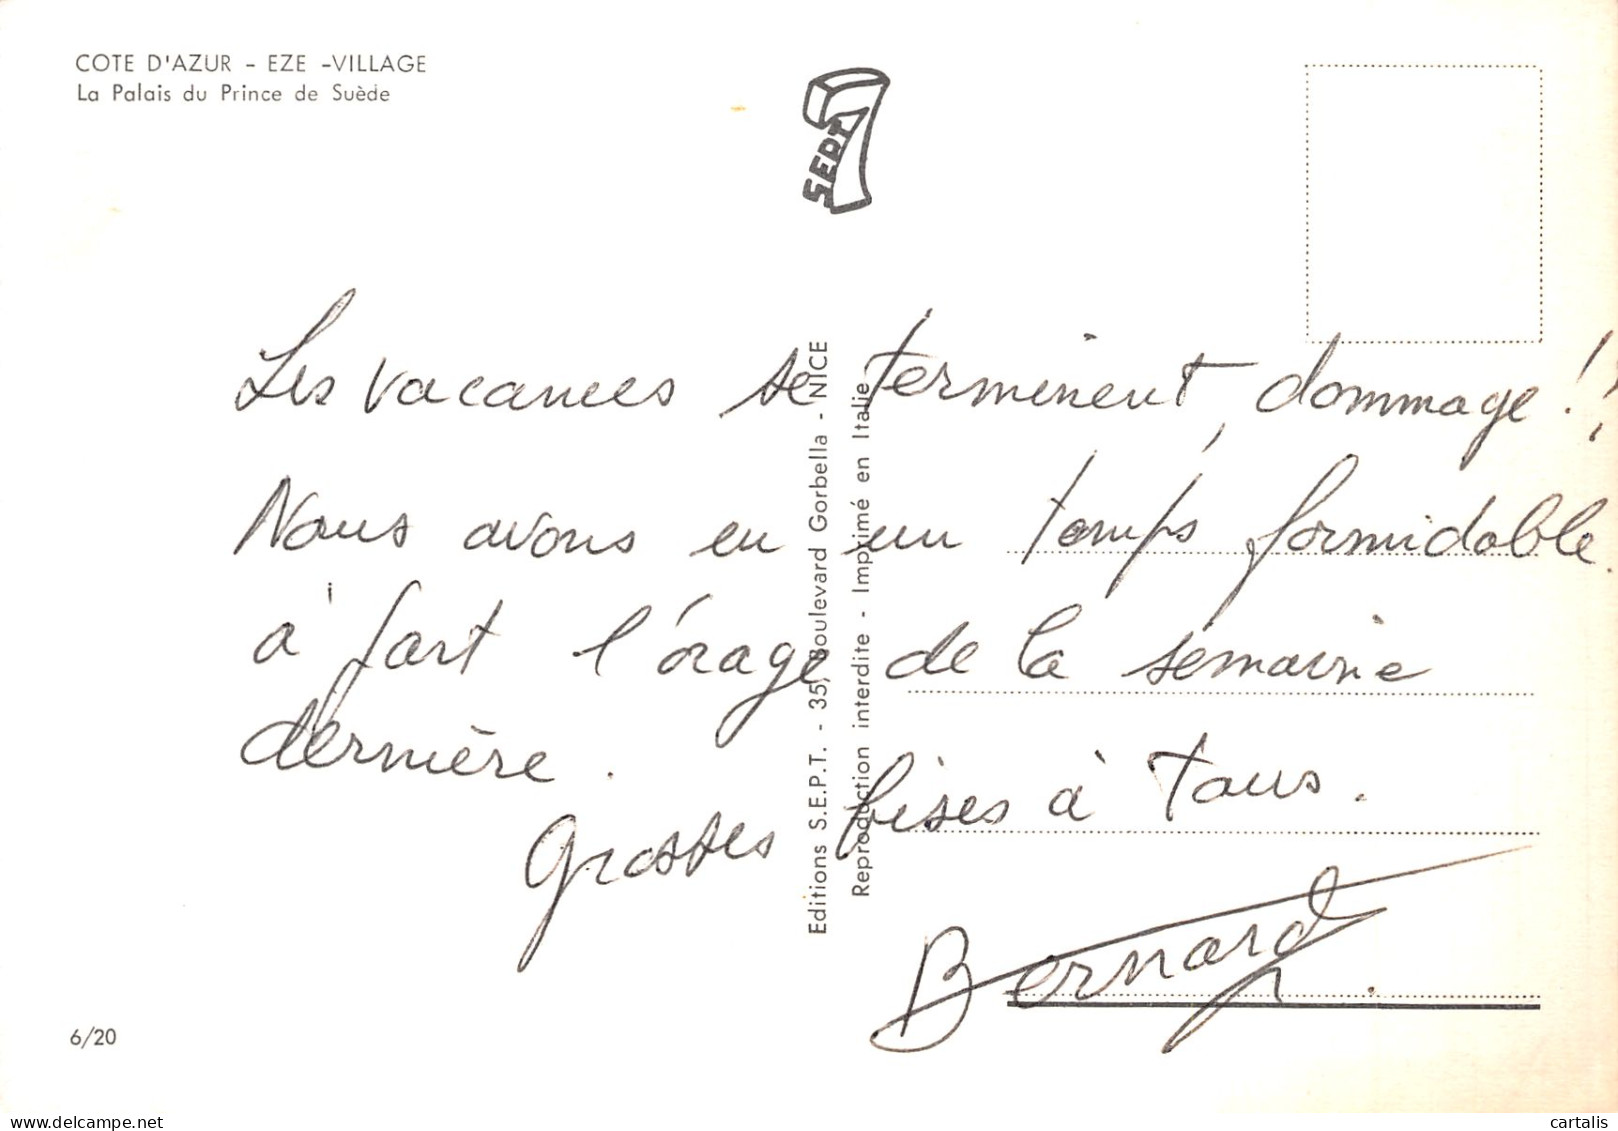 COTE D'AZUR - EZE -VILLAGE
La Palais du Prince de Suède
SEPT
7
Les vacances se terminent, dommage !!
Nous avons eu un temps formidable.
à part l'orage de la semaine
dernière.
Grosses bises à tous.
Bernard
Editions S.E.P.T. - 35, Boulevard Gorbella - NICE
Reproduction interdite - Imprimé en Italie
6/20
cartalis